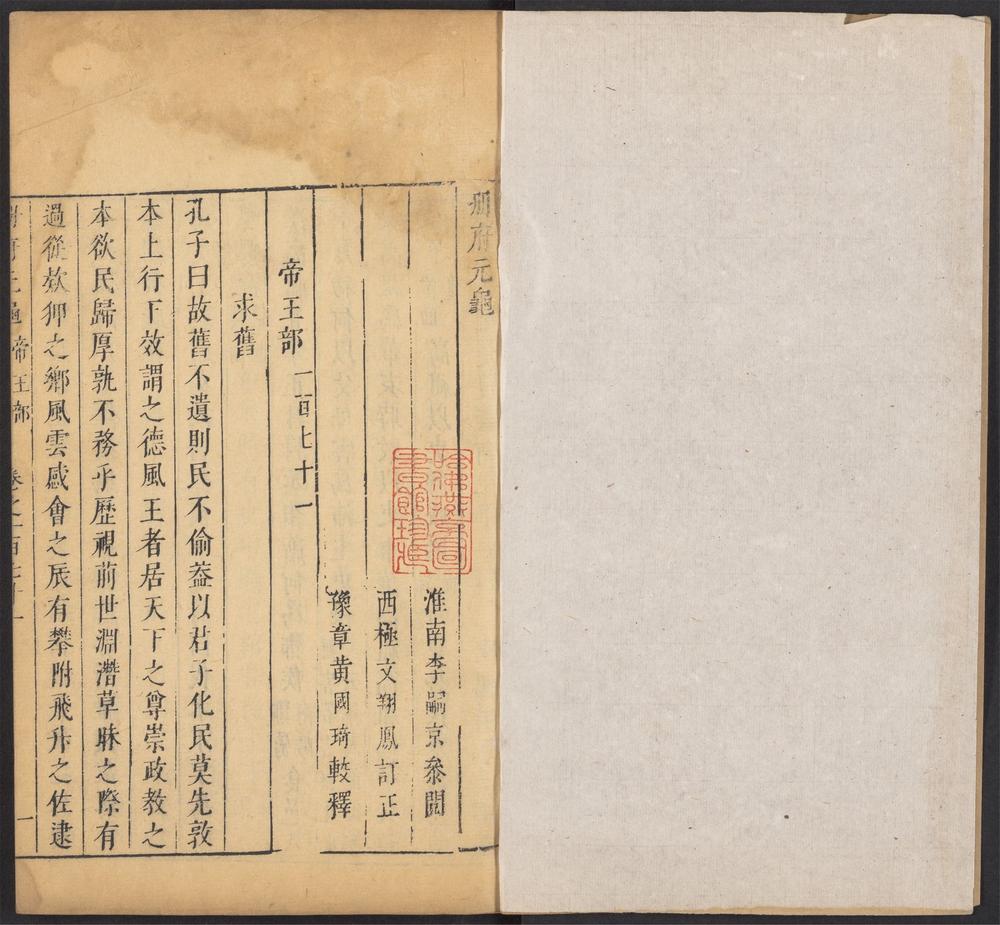 册府元龜
淮南李嗣京叅閱
西極文翔鳳訂正
豫章黃國琦較釋
帝王部 一百七十一
求舊
孔子曰故舊不遺則民不偷葢以君子化民莫先敦
本上行下效謂之德風王者居天下之尊崇政教之
本欲民歸厚孰不務乎歷視前世淵潛草昧之際有
過從欵狎之鄉風雲感會之辰有攀附飛升之佐逮
册府元龜帝王部 卷之一百七十一 一
哈佛燕京圖書館珍藏